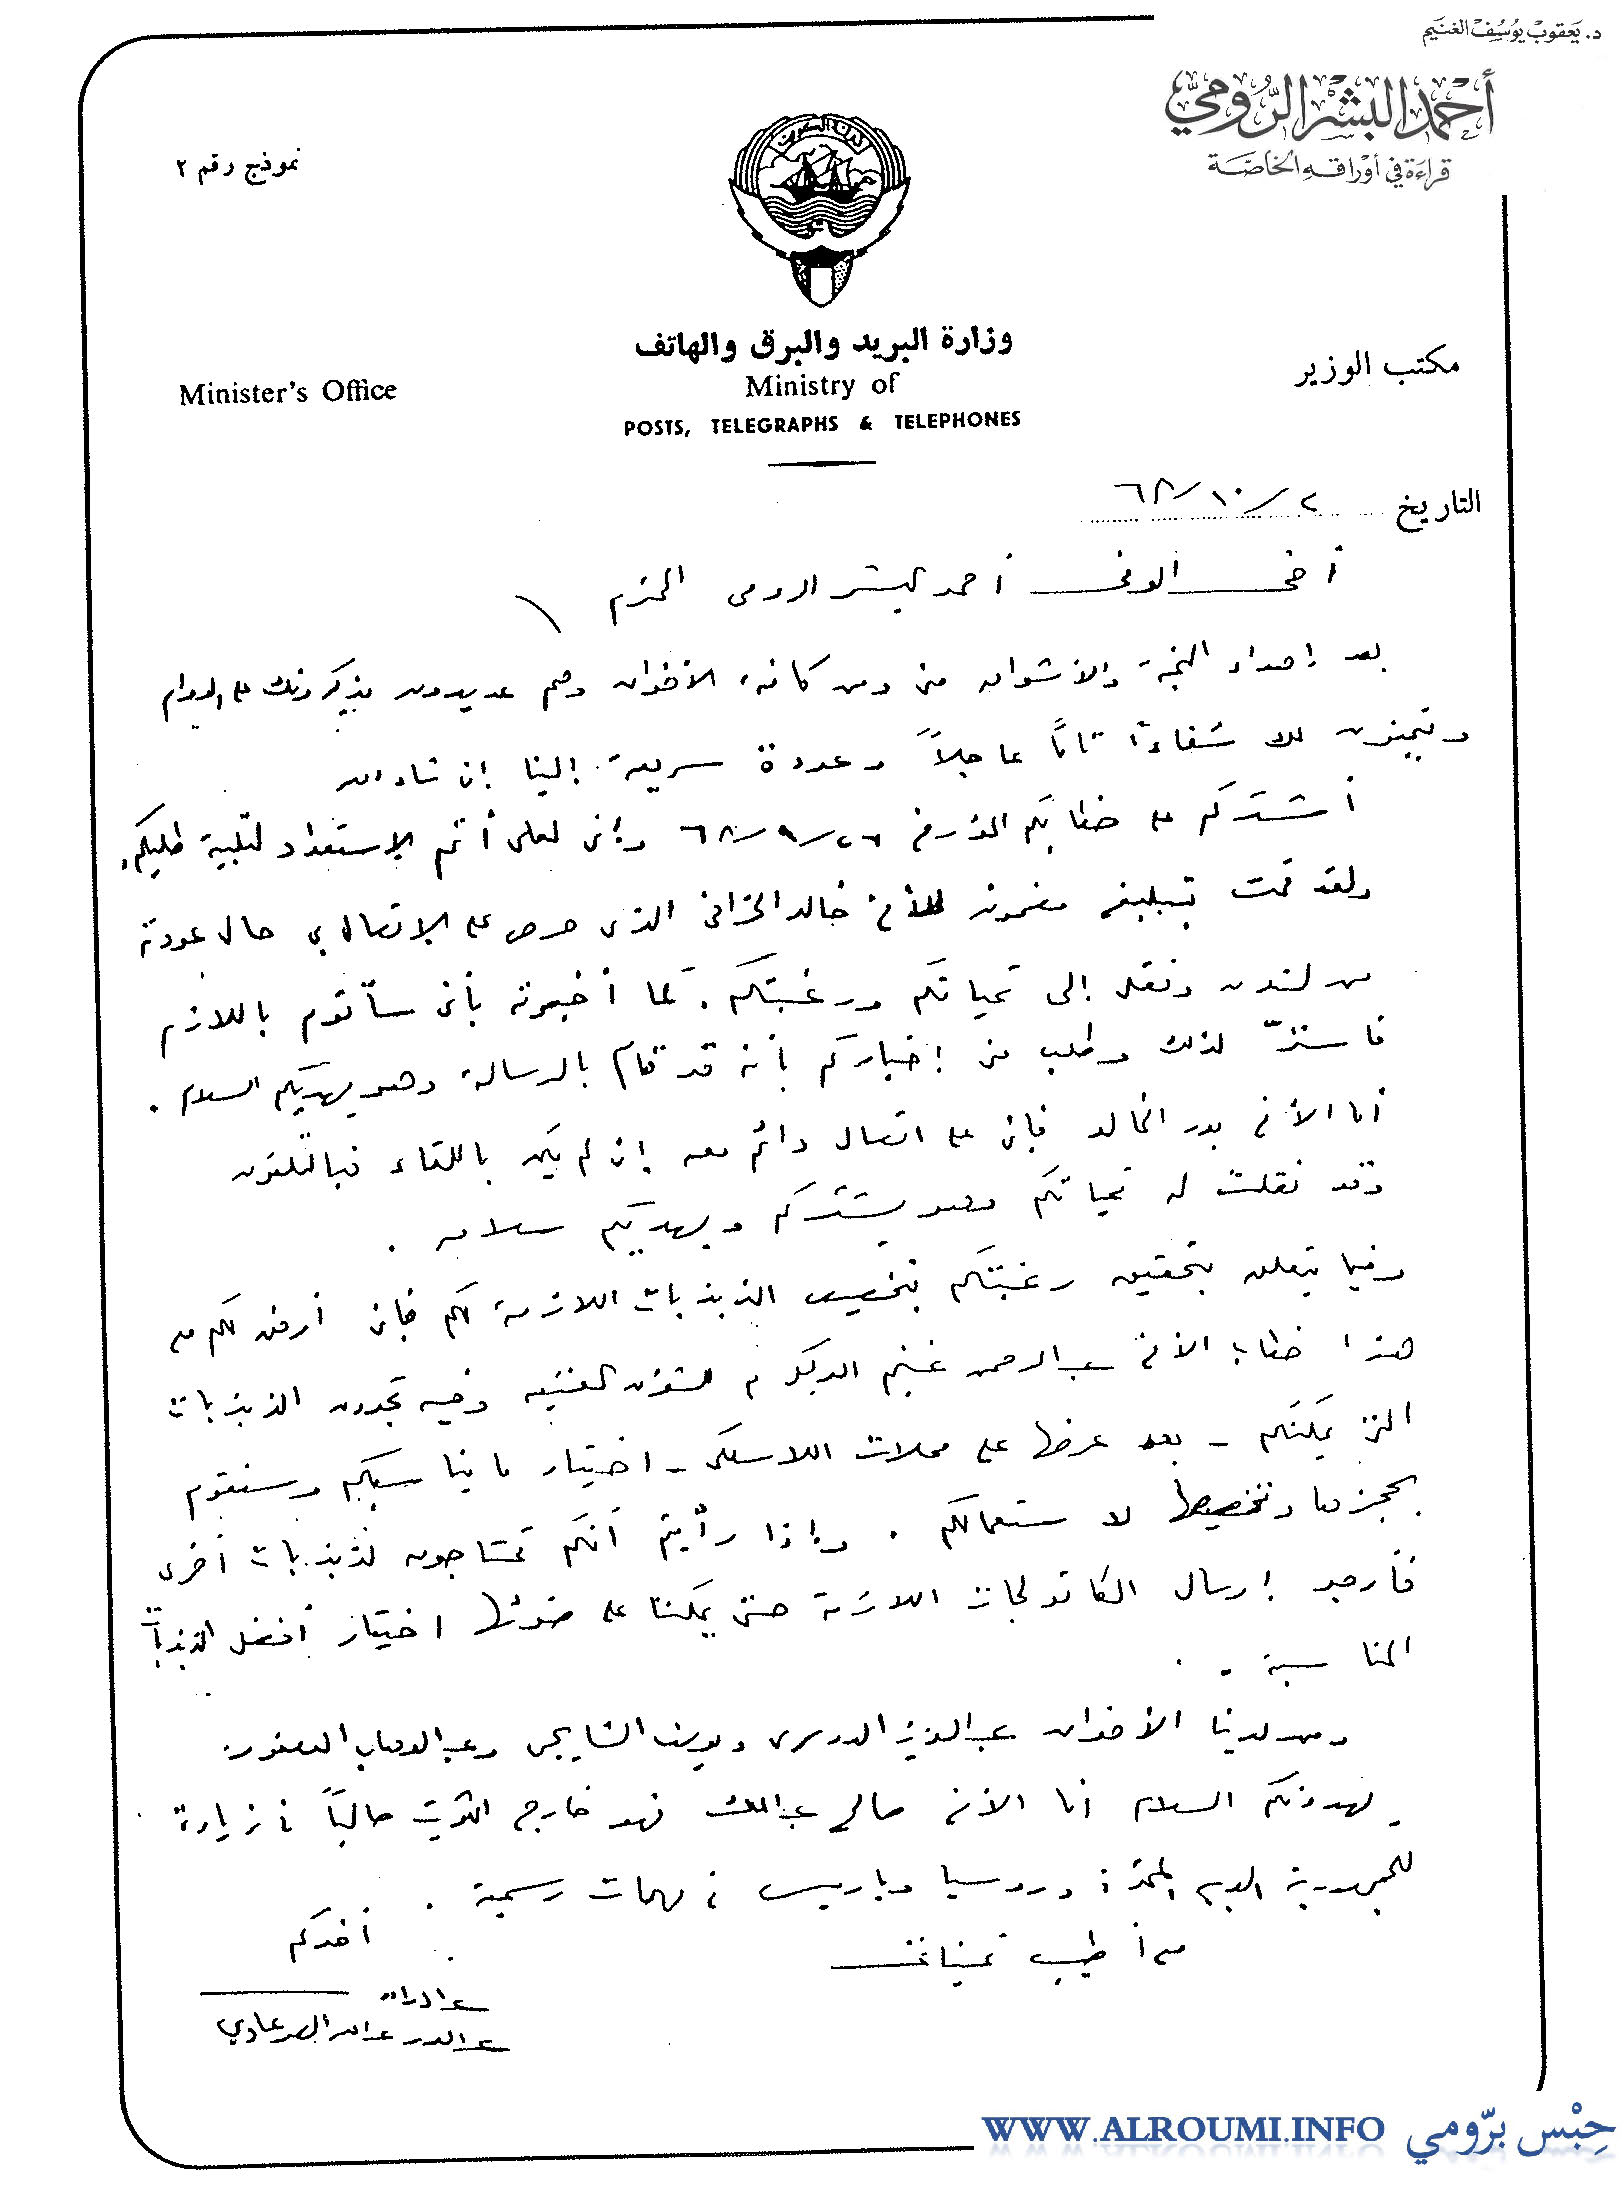 د. يَعقوبْ يوُسُفْ الغنَيم
أحمَد البشْر الرُّوميّ
قراءَة في أوْراقهِ الخاصَّة
نموذج رقم ٢
دولة الكويت
وزارة البريد والبرق والهاتف
Ministry of
POSTS, TELEGRAPHS & TELEPHONES
مكتب الوزير
Minister's Office
التاريخ ٢/١٠/٦٨
أخي الوفي أحمد البشر الرومي المحترم
بعد إهداء التحية والأشواق مني ومن كافة الأخوان وهم عديدون يذكرونك على الدوام
ويتمنون لك شفاءً تاماً عاجلاً وعودة سريعة إلينا إن شاء الله
أشكركم على خطابكم المؤرخ ٢٦/٩/٦٨ وإني لعلى أتم الإستعداد لتلبية طلبكم،
ولقد قمت بتبليغ مضمونه للأخ خالد الخرافي الذي حرص على الإتصال بي حال عودته
من لندن ونقل إلى تحياتكم ورغبتكم. كما أخبرته بأني سأقوم باللازم
فاستر لذلك وطلب مني إخباركم بأنه قد قام بالرسالة وهو يهديكم السلام.
أما الأخ بدر الخالد فإني على اتصال دائم معه إن لم يكن باللقاء فبالتلفون
وقد نقلت له تحياتكم وهو يشكركم ويهديكم سلامه.
وفيما يتعلق بتحقيق رغبتكم بتخصيص الذبذبات اللازمة لكم فإني أرفق لكم مع
هذا خطاب الأخ عبدالرحمن غنيم الوكيل م للشؤون الفنية وفيه تجدون الذبذبات
التي يمكنكم - بعد عرضها على محلات اللاسلكي - اختيار ما يناسبكم وسنقوم
بحجزها وتخصيصها لاستعمالكم. وإذا رأيتم أنكم تحتاجون لذبذبات أخرى
فأرجو إرسال الكاتولجات اللازمة حتى يمكننا على ضوئها اختيار أفضل الذبذبات
المناسبة.
ومن لدينا الأخوان عبدالعزيز الدوسري ويوسف الشايجي وعبدالوهاب العصفور
يهدونكم السلام أما الأخ صالح عبدالملك فهو خارج الكويت حالياً في زيارة
للجمهورية العربية المتحدة وروسيا وباريس في مهمات رسمية.
مع أطيب تمنياتي
أخوكم
WWW.ALROUMI.INFO حِبْس برّومي